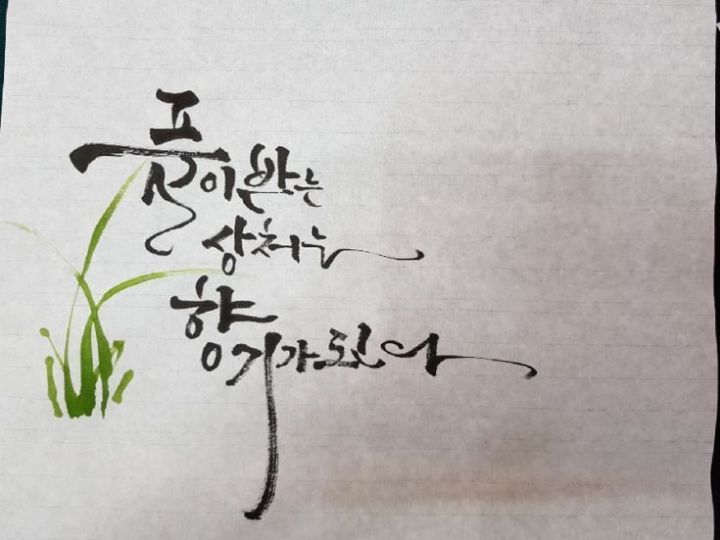 풀이받는
상처는
향기가된다